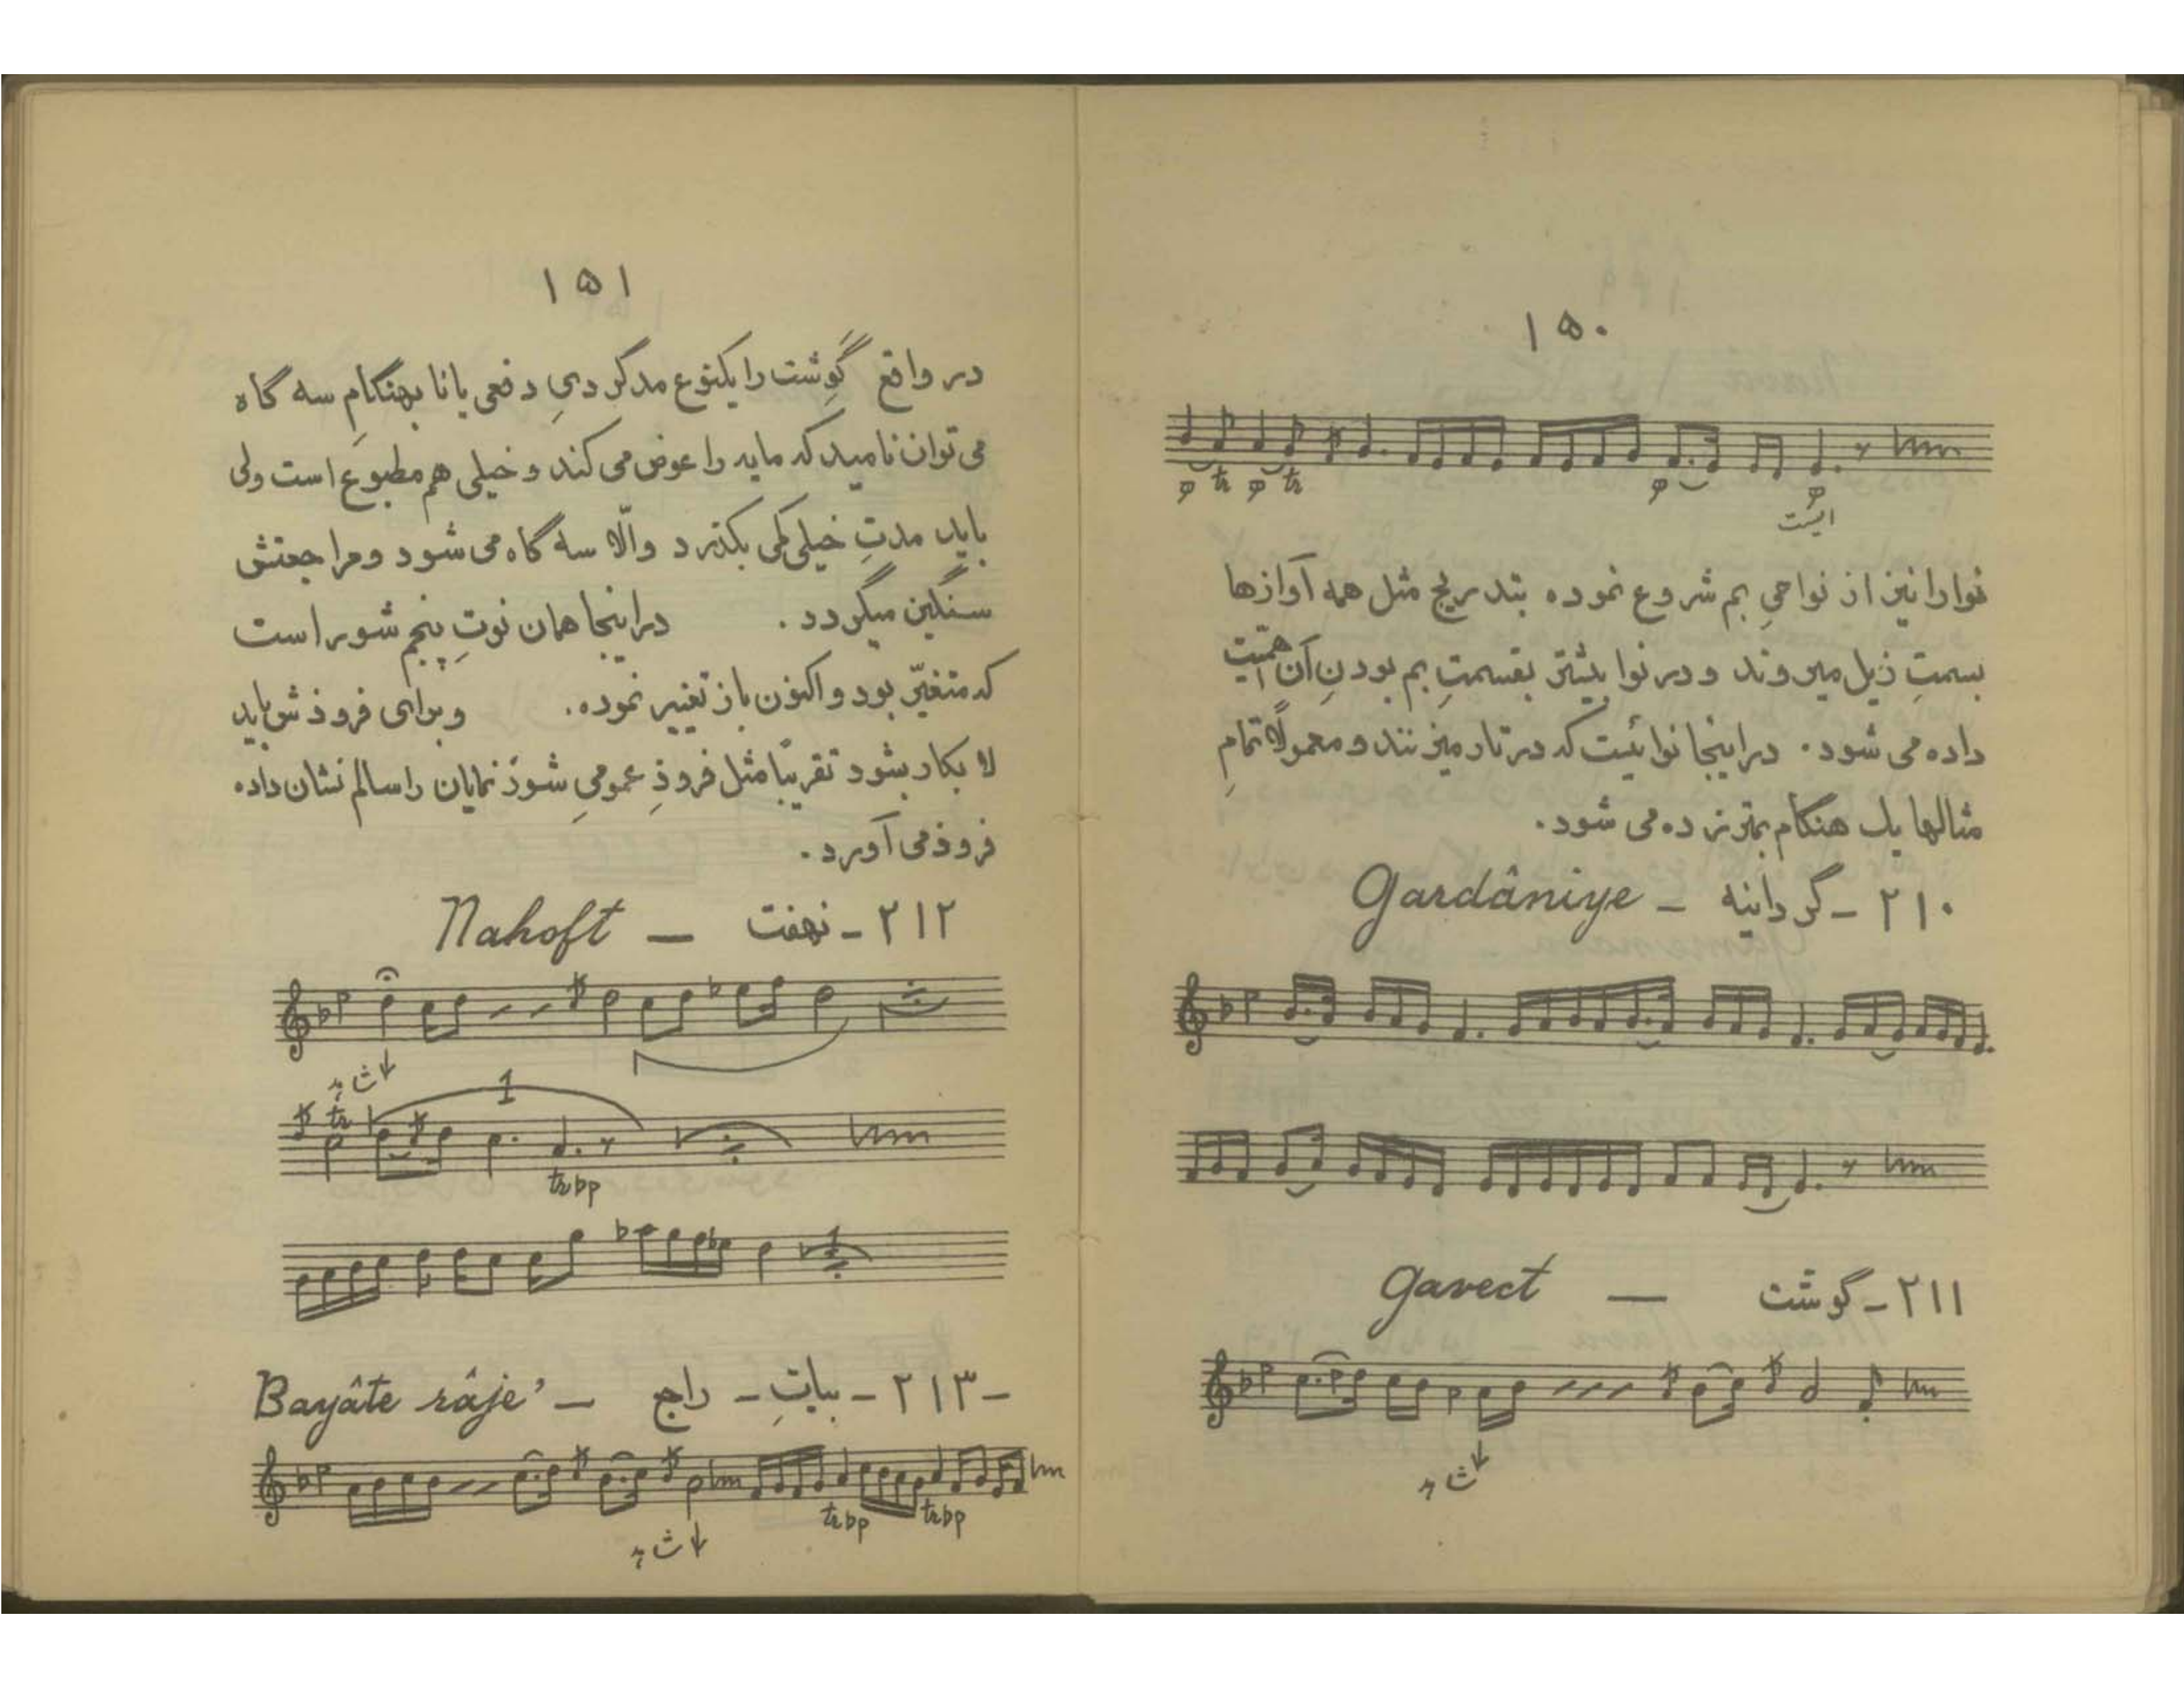 ۱۵۰
tr tr
ایست
نوا را نیز از نواحیِ بم شروع نموده بتدریج مثل همه آوازها
بسمتِ ذیل میروند و در نوا بیشتر بقسمتِ بم بودنِ آن اهمّیت
داده می شود. در اینجا نوائیست که در تار میزنند و معمولاً تمامِ
مثالها یک هنگام بمتر زده می شود.
۲۱۰ - گردانیه - Gardâniye
۲۱۱ - گوشت — Gavect
۱۵۱
در واقع گوِشت را یکنوع مدگردیِ دفعی یا نا بهنگامِ سه گاه
می توان نامید که مایه را عوض می کند و خیلی هم مطبوع است ولی
باید مدتِ خیلی کمی بگذرد والّا سه گاه می شود و مراجعتش
سنگین میگردد. در اینجا همان نوتِ پنجم شور است
که متغیّر بود و اکنون باز تغییر نموده. و برای فروذش باید
لا بکار بشود تقریباً مثل فروذِ عمومیِ شوذ نمایان را سالم نشان داده
فروذ می آورد.
۲۱۲ - نهفت — Nahoft
1
tr
trbp
1
۲۱۳ - بیاتِ - راجع - Bayâte râje’
trbp trbp